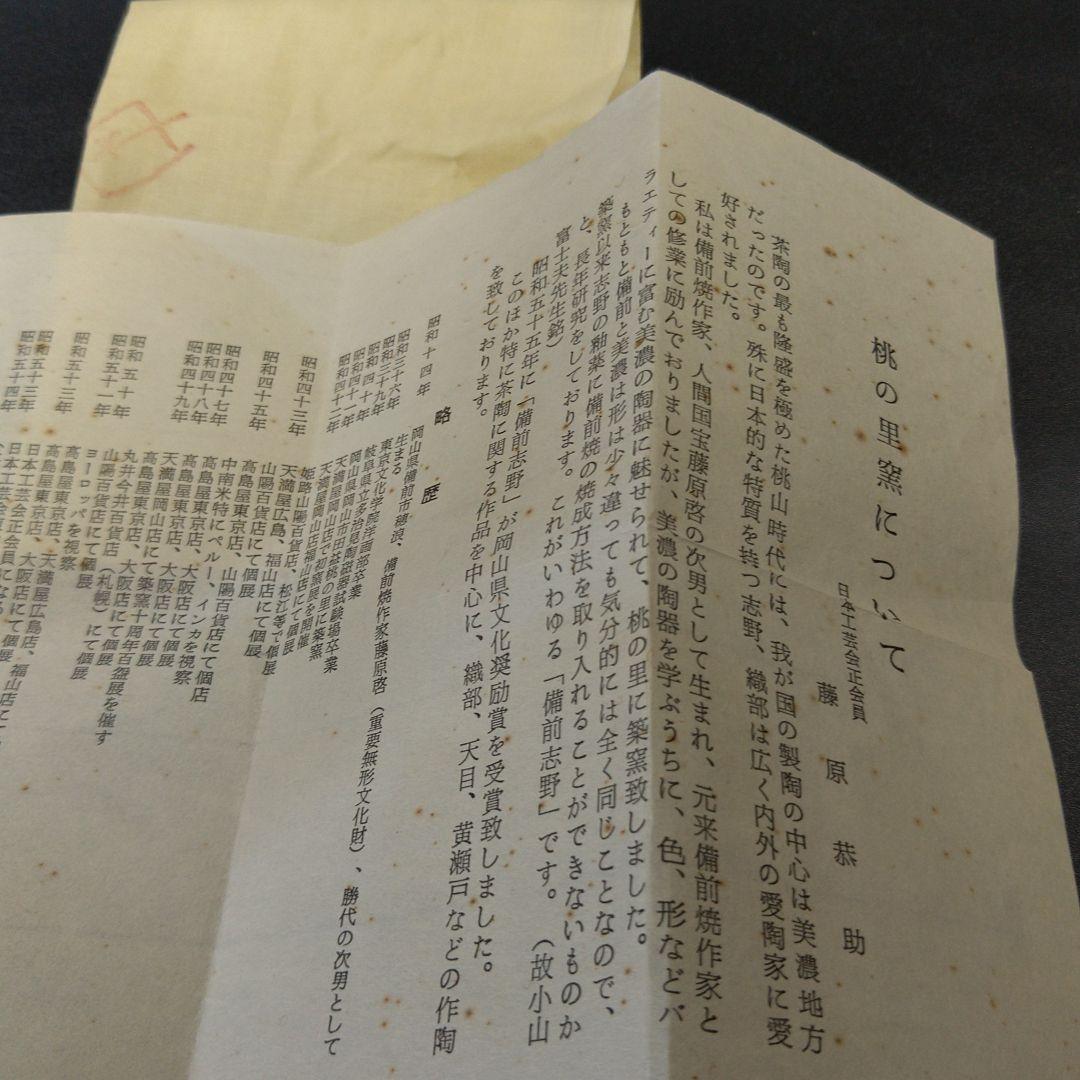 桃の里窯について
日本工芸会正会員
藤原恭助
茶陶の最も隆盛を極めた桃山時代には、我が国の製陶の中心は美濃地方
だったのです。殊に日本的な特質を持つ志野、織部は広く内外の愛陶家に愛
好されました。
私は備前焼作家、人間国宝藤原啓の次男として生まれ、元来備前焼作家と
しての修業に励んでおりましたが、美濃の陶器を学ぶうちに、色、形などバ
ラエティーに富む美濃の陶器に魅せられて、桃の里に築窯致しました。
もともと備前と美濃は形は少々違っても気分的には全く同じことなので、
築窯以来志野の釉薬に備前焼の焼成方法を取り入れることができないものか
と、長年研究をしております。これがいわゆる「備前志野」です。(故小山
富士夫先生銘)
昭和五十五年に「備前志野」が岡山県文化奨励賞を受賞致しました。
このほか特に茶陶に関する作品を中心に、織部、天目、黄瀬戸などの作陶
を致しております。
略歴
昭和十四年 岡山県備前市穂浪、備前焼作家藤原啓(重要無形文化財)、勝代の次男として
生まる
昭和三十六年 東京文化学院洋画部卒業
昭和三十九年 岐阜県立多治見陶磁器試験場卒業
昭和四十年 岡山県岡山市田益桃の里に築窯
昭和四十一年 天満屋岡山店で初窯展を開催
昭和四十二年 天満屋岡山店福山店にて個展
姫路山陽百貨店、松江等で個展
昭和四十三年 天満屋広島、福山店にて個展
山陽百貨店にて個展
昭和四十五年 高島屋東京店、山陽百貨店にて個店
中南米特にペルー、インカを視察
昭和四十七年 高島屋東京店、大阪店にて個展
昭和四十八年 天満屋岡山店にて個展
昭和四十九年 高島屋東京店にて築窯十周年百盌展を催す
昭和五十年 丸井今井百貨店(札幌)にて個展
昭和五十一年 山陽百貨店にて個展
ヨーロッパを視察
昭和五十二年 高島屋東京店、天満屋広島店、福山店に
昭和五十三年 高島屋東京店、大阪店にて個展
昭和五十四年 日本工芸会正会員になる